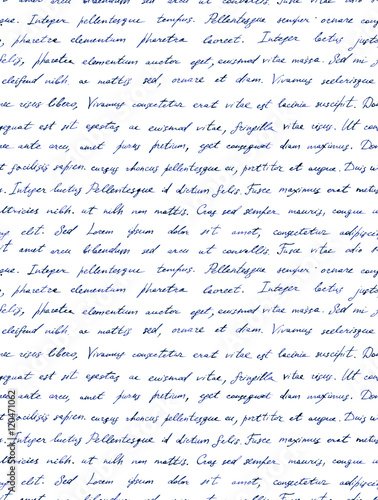 Integer pellentesque tempus. Pellentesque semper ornare cong
s, pharetra elementum pharetra laoreet. Integer luctus justo
Felis, pharetra elementum auctor eget, euismod vitae massa. Sed mi
eleifend nibh ac mattis sed, ornare et diam. Vivamus scelerisque
ue risus libero, Vivamus consectetur erat vitae est lacinia suscipit. Do
sequat est sit egestas ac euismod vitae, fringilla vitae risus. Ut con
ue ante arcu, amet purus pretium, eget consequat diam maximus. Don
t facilisis sapien. cursus rhoncus pellentesque eu, porttitor et augue. Duis u
s. Integer luctus Pellentesque id dictum Felis. Fusce maximus erat metus
ultricies nibh. ut nibh non mattis. Cras sed semper mauris, congue u
ng elit. Sed Lorem ipsum dolor sit amet, consectetur adipiscin
it amet arcu bibendum sed arcu ut convallis. Fusce vitae odio
que. Integer pellentesque tempus. Pellentesque semper ornare cong
s, pharetra elementum pharetra laoreet. Integer luctus justo
Felis, pharetra elementum auctor eget, euismod vitae massa. Sed mi
eleifend nibh ac mattis sed, ornare et diam. Vivamus scelerisque
ue risus libero, Vivamus consectetur erat vitae est lacinia suscipit. Do
sequat est sit egestas ac euismod vitae, fringilla vitae risus. Ut con
ue ante arcu, amet purus pretium, eget consequat diam maximus. Don
t facilisis sapien. cursus rhoncus pellentesque eu, porttitor et augue. Duis u
s. Integer luctus Pellentesque id dictum Felis. Fusce maximus erat metus
ultricies nibh. ut nibh non mattis. Cras sed semper mauris, congue u
ng elit. Sed Lorem ipsum dolor sit amet, consectetur adipiscin
it amet arcu bibendum sed arcu ut convallis. Fusce vitae odio
Adobe Stock | #120471062